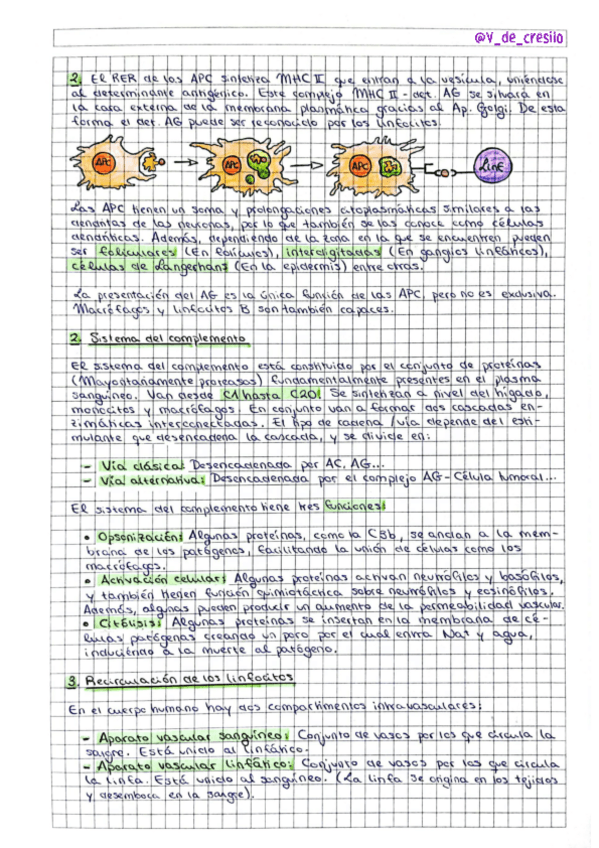 @V_de_cresilo
2. El RER de las APC sintetiza MHC II que entran a la vesícula, uniéndose
al determinante antigénico. Este complejo MHC II - det. AG se situará en
la cara externa de la membrana plasmática gracias al Ap. Golgi. De esta
forma el det. AG puede ser reconocido por los linfocitos.
APC
APC
APC
LinF
Las APC tienen un soma y prolongaciones citoplasmáticas similares a las
dendritas de las neuronas, por lo que también se las conoce como células
dendríticas. Además, dependiendo de la zona en la que se encuentren pueden
ser foliculares (En folículos), interdigitadas (En ganglios linfáticos),
células de Langerhans (En la epidermis) entre otras.
La presentación del AG es la única función de las APC, pero no es exclusiva.
Macrófagos y linfocitos B son también capaces.
2. Sistema del complemento
El sistema del complemento está constituido por el conjunto de proteínas
(Mayoritariamente proteasas) fundamentalmente presentes en el plasma
sanguíneo. Van desde C1 hasta C20. Se sintetizan a nivel del hígado,
monocitos y macrófagos. En conjunto van a formar dos cascadas en-
zimáticas interconectadas. El tipo de cadena /vía depende del estí-
mulante que desencadena la cascada, y se divide en:
- Vía clásica: Desencadenada por AC, AG...
- Vía alternativa: Desencadenada por el complejo AG - Célula tumoral...
El sistema del complemento tiene tres funciones:
• Opsonización: Algunas proteínas, como la C3b, se anclan a la mem-
brana de los patógenos, facilitando la unión de células como los
macrófagos.
• Activación celular: Algunas proteínas activan neutrófilos y basófilos,
y también tienen función quimiotáctica sobre neutrófilos y eosinófilos.
Además, algunas pueden producir un aumento de la permeabilidad vascular.
• Citólisis: Algunas proteínas se insertan en la membrana de cé-
lulas patógenas creando un poro por el cual entra Na+ y agua,
induciendo a la muerte al patógeno.
3. Recirculación de los linfocitos
En el cuerpo humano hay dos compartimentos intravasculares:
- Aparato vascular sanguíneo: Conjunto de vasos por los que circula la
sangre. Está unido al linfático.
- Aparato vascular linfático: Conjunto de vasos por los que circula
la linfa. Está unido al sanguíneo. (La linfa se origina en los tejidos
y desemboca en la sangre).